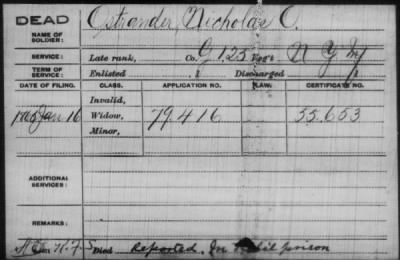 DEAD
Ostrander, Nicholas O.
NAME OF SOLDIER:
SERVICE: Late rank, Co. G 125 Reg't N Y Inf
TERM OF SERVICE: Enlisted , 1 Discharged
DATE OF FILING. CLASS. APPLICATION NO. LAW. CERTIFICATE NO.
Invalid,
1865 Jan 16 Widow, 79.416 55.653
Minor,
ADDITIONAL SERVICES:
REMARKS:
Died Reported, In prison